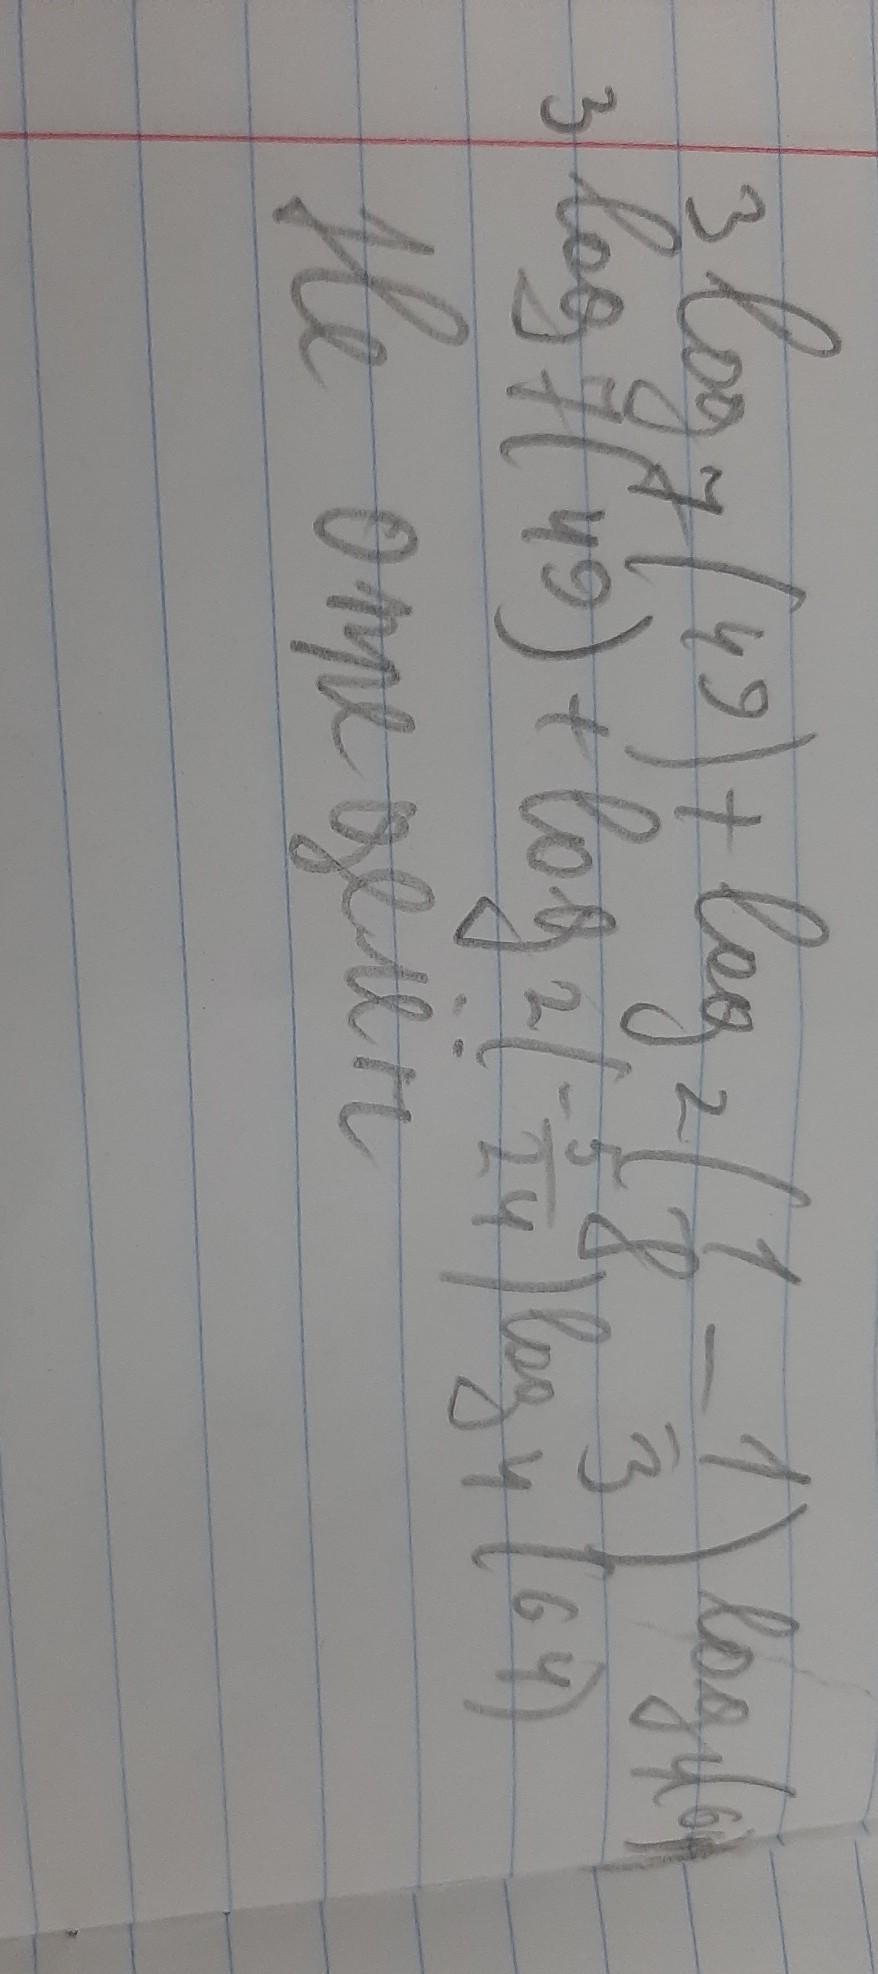 3 log 7 (49) + log 2 (1/8 - 1/3) log 4 (64)
3 log 7 (49) + log 2 (-5/24) log 4 (64)
Не определ